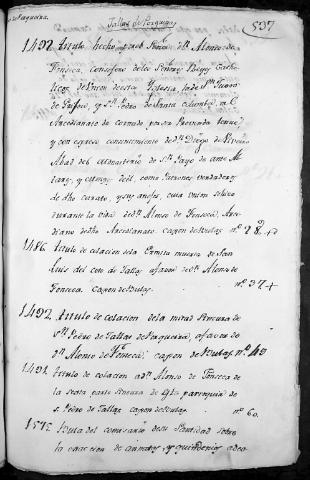 Tallas de Parguiña
537
1492 Titulo hecho por el Señor Dn Alonso de
Fonseca, consejero de los Señores Reyes Catho
licos de Union de esta Yglesia, la de Sn Juan
y Sn Pedro de Santa columba, al
Arcedianato de cornado por ser Prevenda tenue
y con expreso consentimiento de Dn Diego de
Abad del Monasterio de Sn Payo de ante Al
tares, y como Patronos verdaderos
de dho curato, y sus anejos, cuia union se hizo
durante la vida de Dn Alonso de Fonseca, Arce
diano de dho Arcedianato. cajon de Bulas no 28
1486 Titulo de colacion de la Ermita de San
Luis del coto de Tallas a favor de Dn Alonso de
Fonseca. cajon de Bulas. no 37
1492 Titulo de colacion de la mitad Sincura de
Sn Pedro de Tallas de Parguiña, a favor de
Dn Alonso de Fonseca. cajon de Bulas no 49
1491 Titulo de colacion a Dn Alonso de Fonseca de
la sexta parte Sincura de la parroquia de
S. Pedro de Tallas cajon de Bulas no 60.
1573 Bula del comisario de su Santidad sobre
la